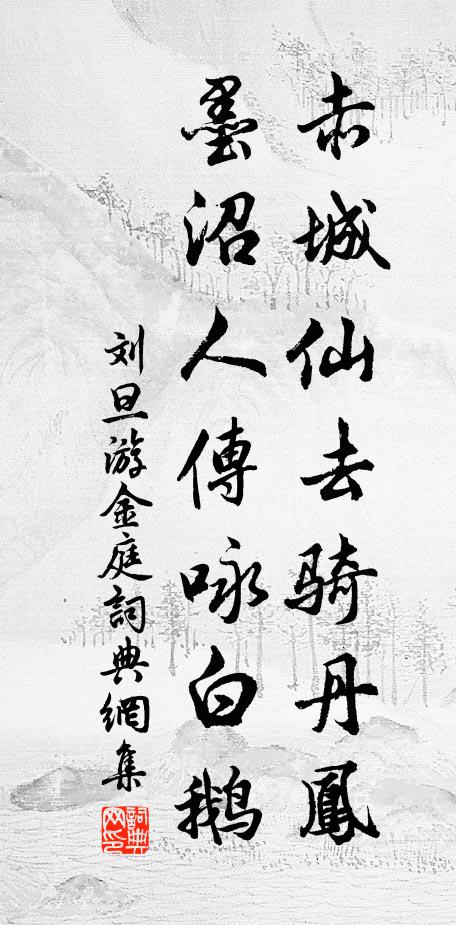 赤城仙去骑丹鳳
墨沼人傳咏白鹅
刘旦游金庭詞典網集
詞典网印